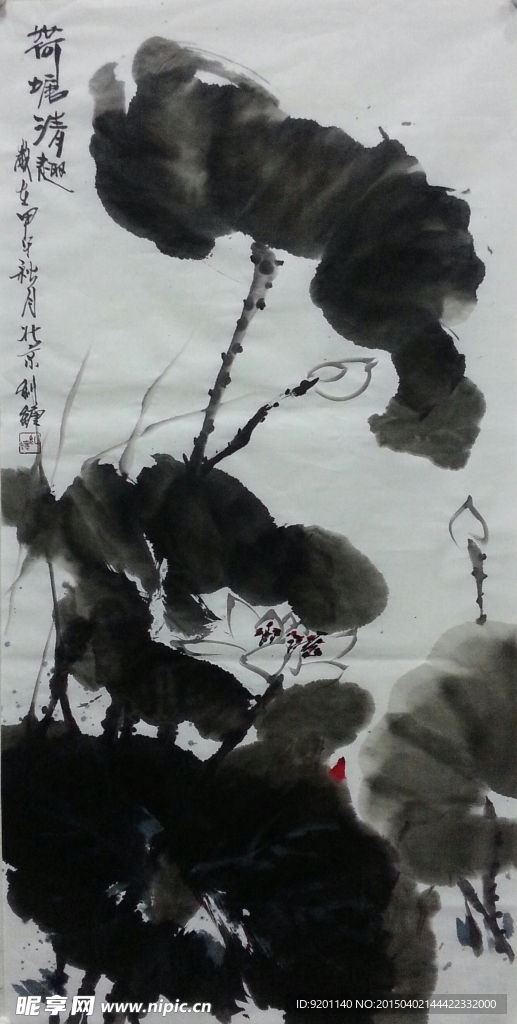 荷塘清趣
歲在甲午秋月北京
昵享网 www.nipic.cn
ID:9201140 NO:20150402144422332000